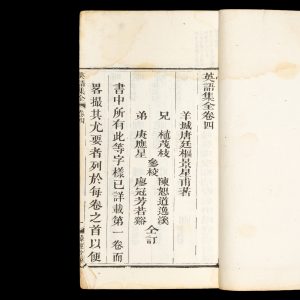 英語集全卷四
羊城唐廷樞景星甫著
兄 植茂枝 陳恕道逸溪
參校 仝訂
弟 庚應星 廖冠芳若谿
書中所有此等字樣已詳載第一卷而
畧撮其尤要者列於每卷之首以便
英語集全 卷四